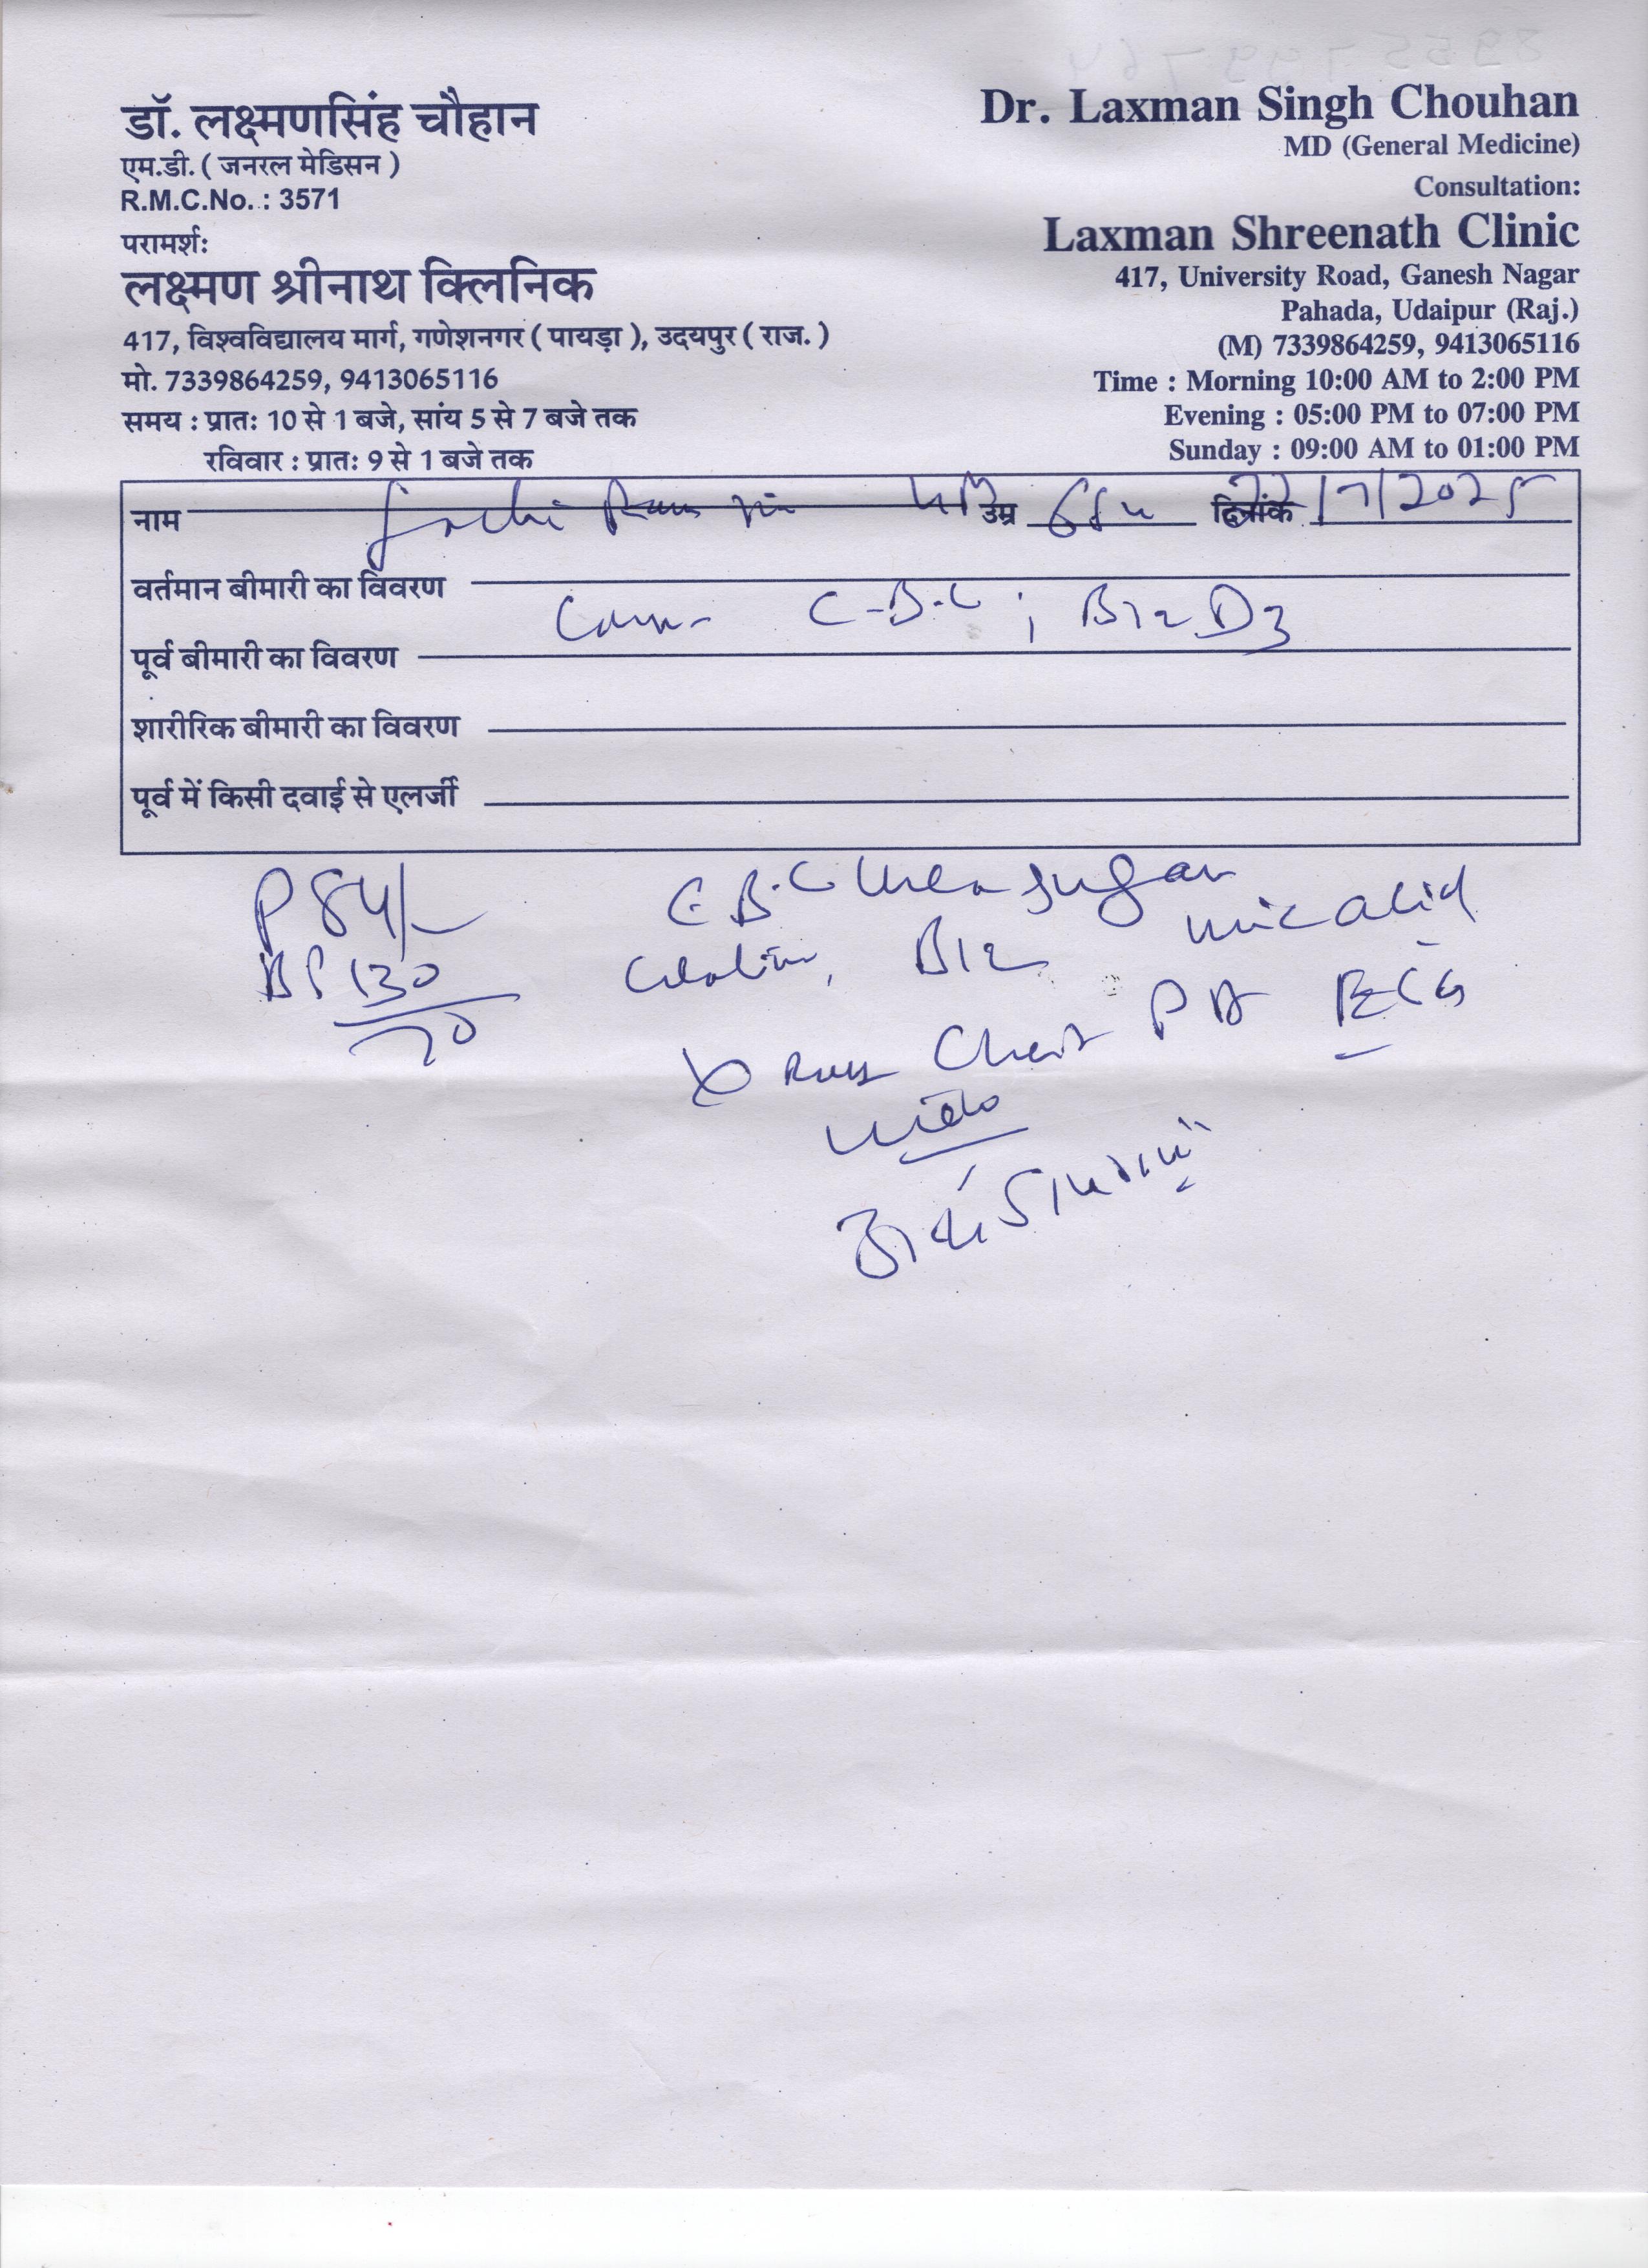 डॉ. लक्ष्मणसिंह चौहान
एम.डी. ( जनरल मेडिसन )
R.M.C.No. : 3571
परामर्श:
लक्ष्मण श्रीनाथ क्लिनिक
417, विश्वविद्यालय मार्ग, गणेशनगर ( पायड़ा ), उदयपुर ( राज. )
मो. 7339864259, 9413065116
समय : प्रातः 10 से 1 बजे, सांय 5 से 7 बजे तक
रविवार : प्रातः 9 से 1 बजे तक
Dr. Laxman Singh Chouhan
MD (General Medicine)
Consultation:
Laxman Shreenath Clinic
417, University Road, Ganesh Nagar
Pahada, Udaipur (Raj.)
(M) 7339864259, 9413065116
Time : Morning 10:00 AM to 2:00 PM
Evening : 05:00 PM to 07:00 PM
Sunday : 09:00 AM to 01:00 PM
नाम Ram उम्र दिनांक 22/7/2025
वर्तमान बीमारी का विवरण
C-B.C ; B12 D3
पूर्व बीमारी का विवरण
शारीरिक बीमारी का विवरण
पूर्व में किसी दवाई से एलर्जी
P 84/-
BP 130
70
C.B.C Urea sugar
B12 uric acid
X Ray Chest PA ECG